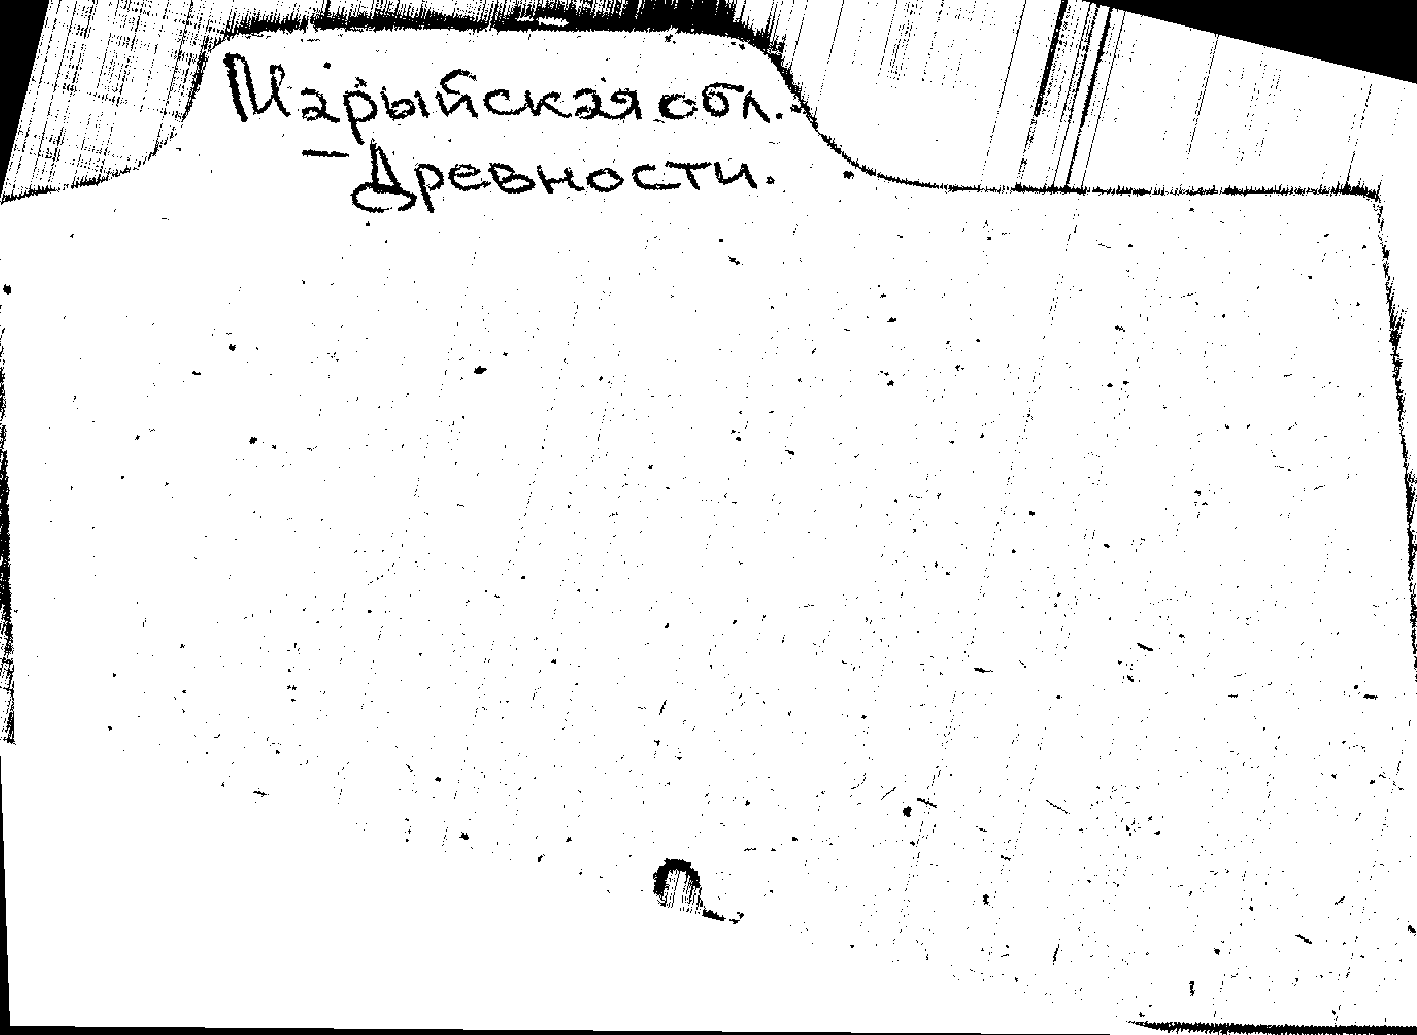 Марыйская обл.
— Древности.